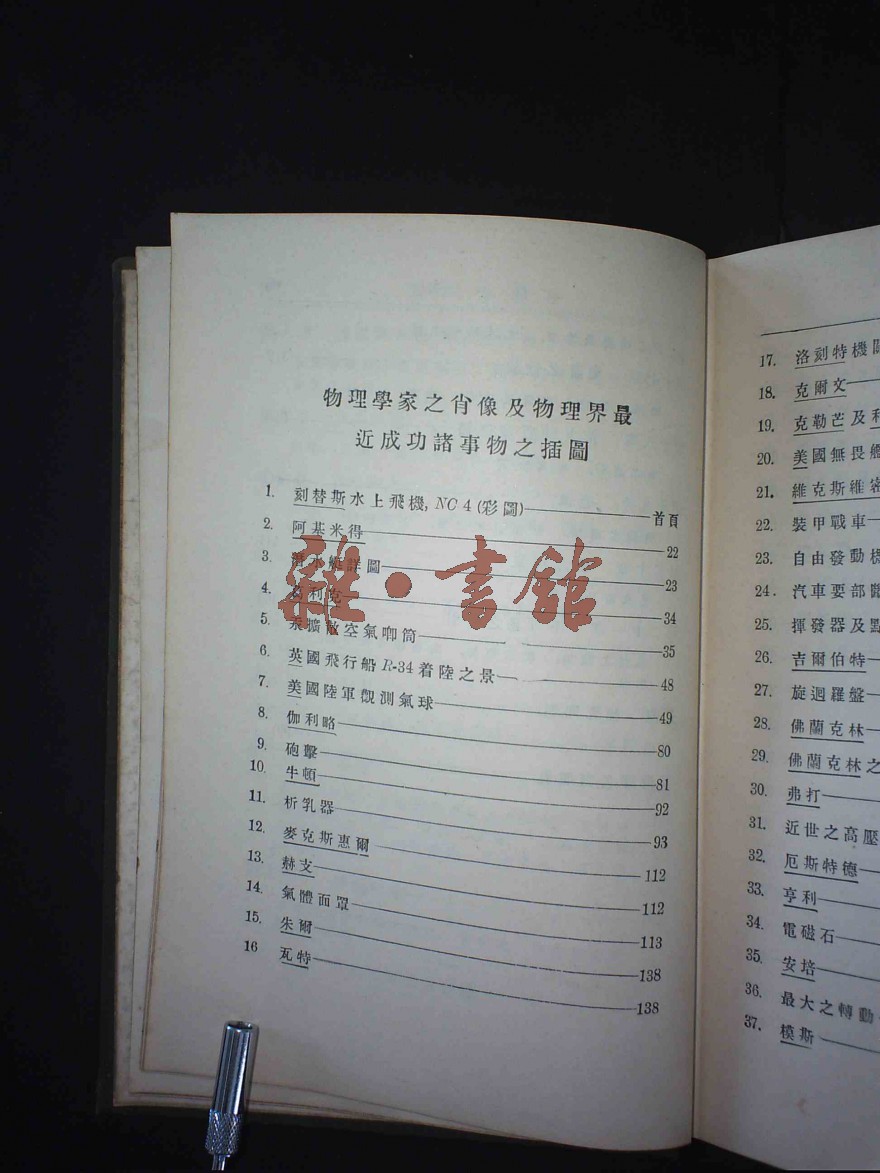 物理學家之肖像及物理界最
近成功諸事物之插圖
1. 刻替斯水上飛機, NC 4 (彩圖)——首頁
2. 阿基米得——22
3. 潛水艇詳圖——23
4. 葛利克——34
5. 汞擴散空氣唧筒——35
6. 英國飛行船 R-34 着陸之景——48
7. 美國陸軍觀測氣球——49
8. 伽利略——80
9. 砲擊——81
10. 牛頓——92
11. 析乳器——93
12. 麥克斯惠爾——112
13. 赫支——112
14. 氣體面罩——113
15. 朱爾——138
16 瓦特——138
雜·書館
17. 洛刻特機關
18. 克爾文——
19. 克勒芒及
20. 美國無畏艦
21. 維克斯維密
22. 裝甲戰車——
23. 自由發動機
24. 汽車要部斷
25. 揮發器及點
26. 吉爾伯特——
27. 旋迴羅盤——
28. 佛蘭克林——
29. 佛蘭克林之
30. 弗打——
31. 近世之高壓
32. 厄斯特德——
33. 亨利——
34. 電磁石——
35. 安培——
36. 最大之轉動
37. 模斯——